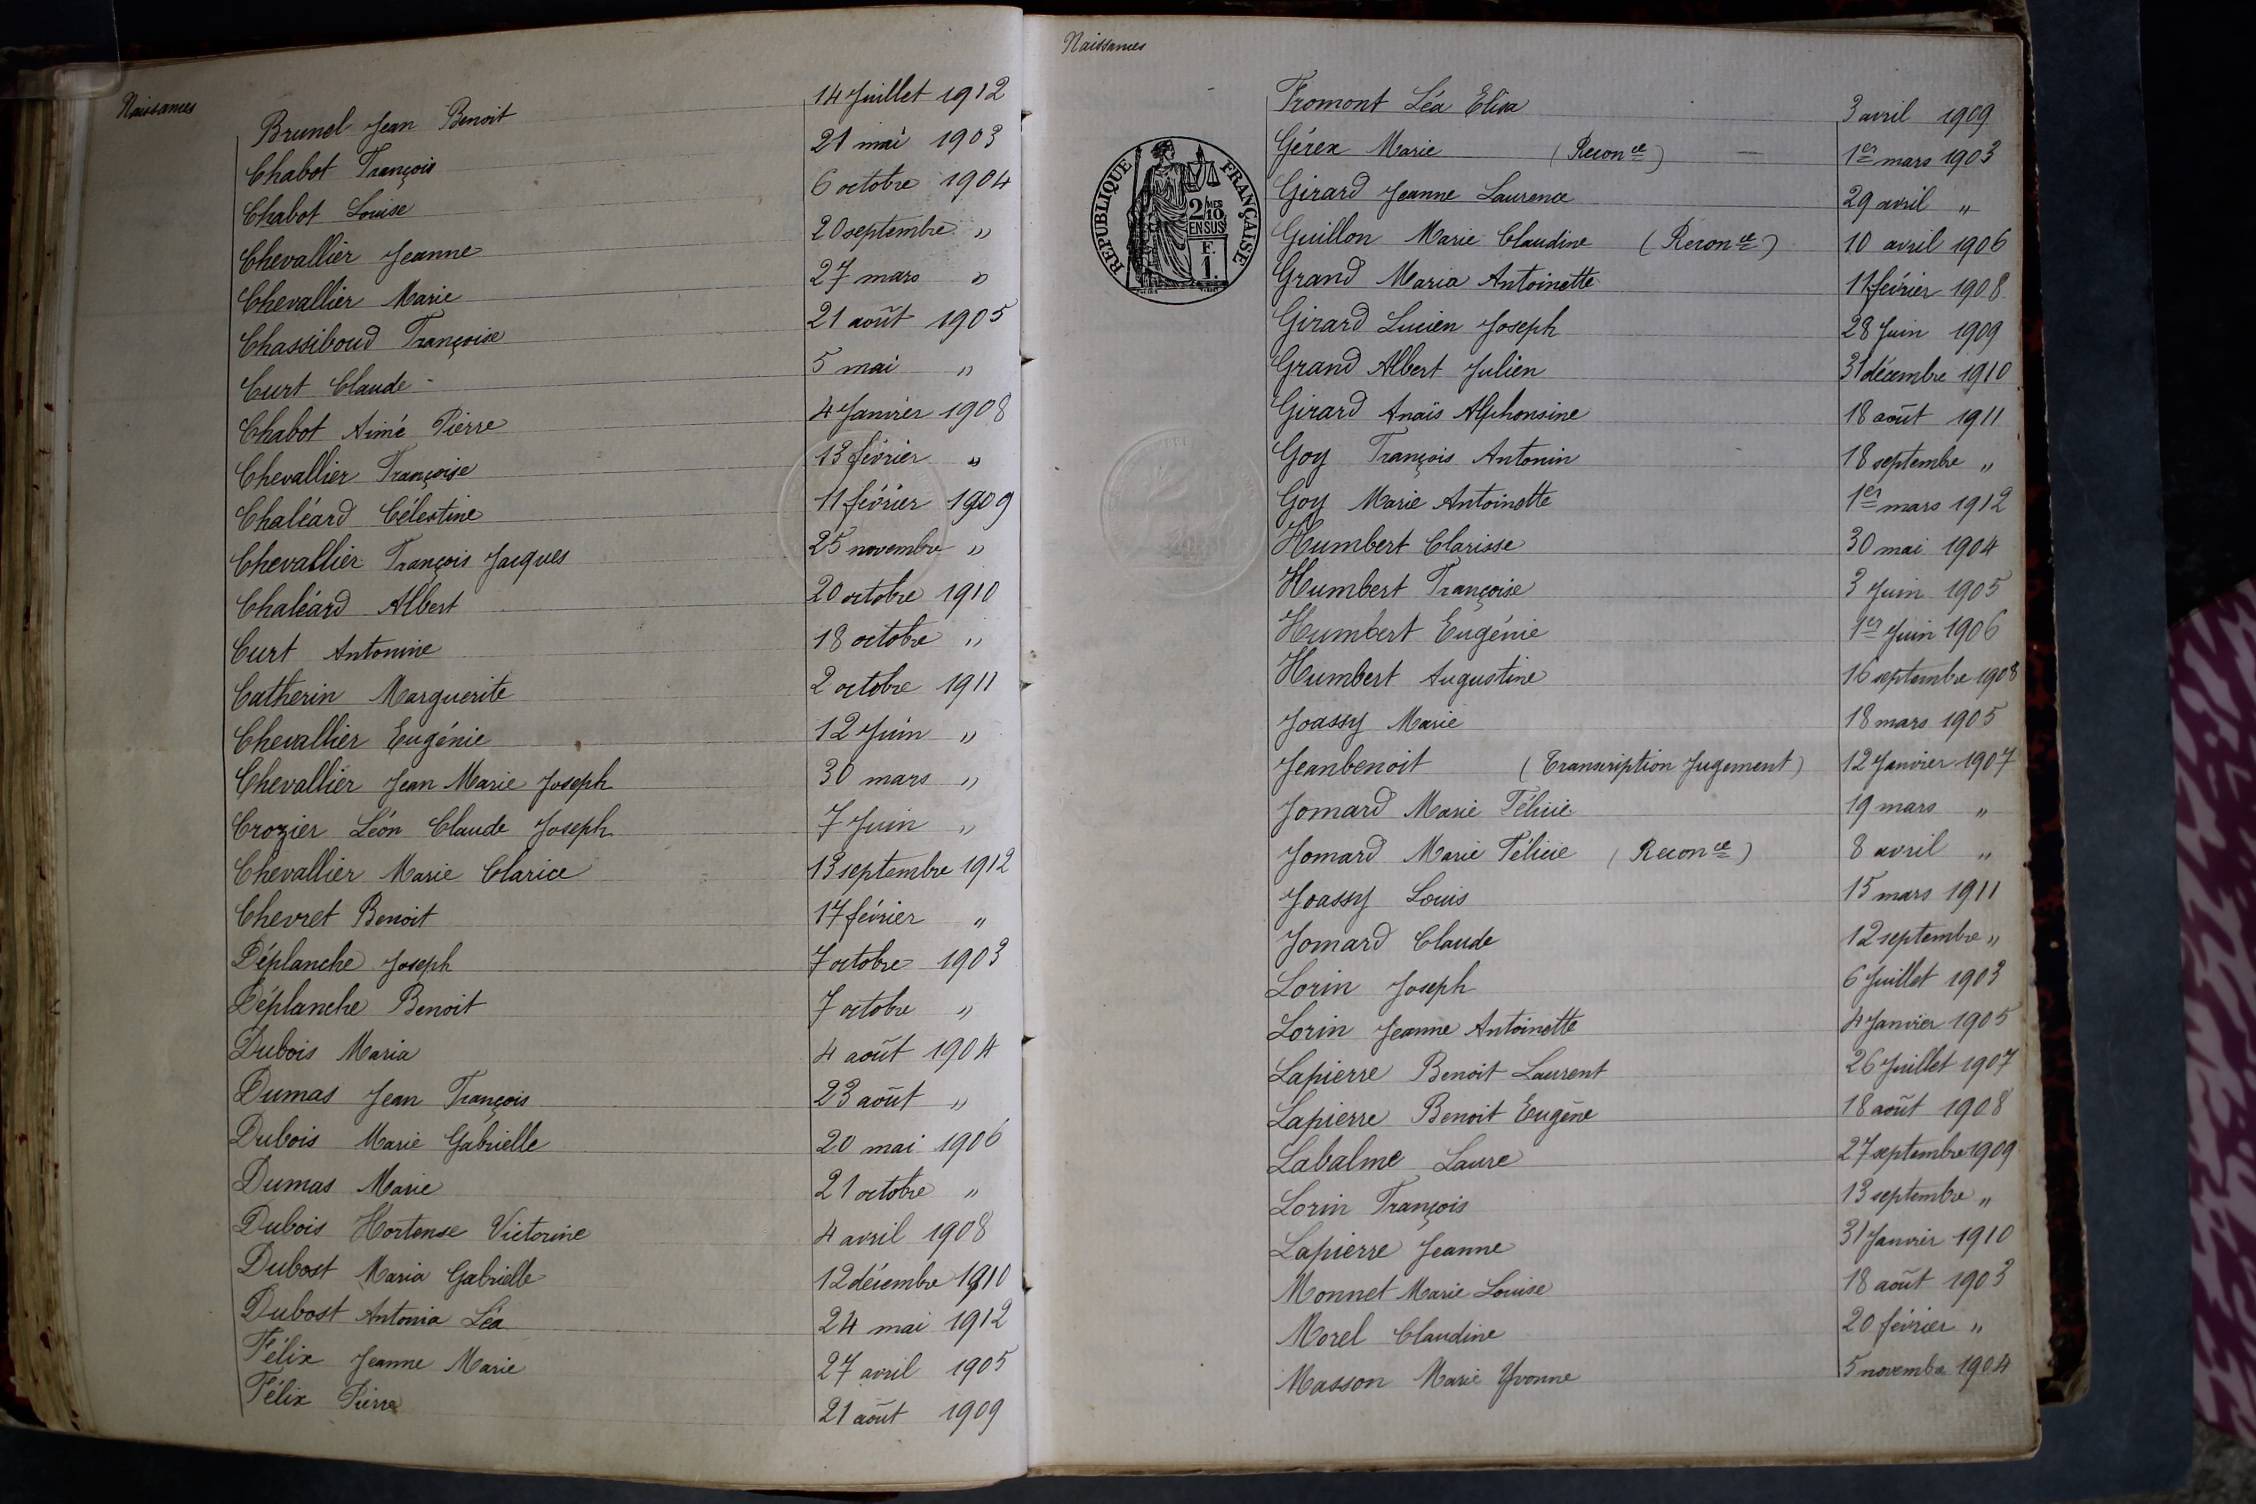 Naissances
Brunel Jean Benoit 14 Juillet 1912
Chabot François 21 mai 1903
Chabot Louise 6 octobre 1904
Chevallier Jeanne 20 septembre "
Chevallier Marie 27 mars "
Chassiboud Françoise 21 août 1905
Curt Claude 5 mai "
Chabot Aimé Pierre 4 Janvier 1908
Chevallier Françoise 13 février "
Chaléard Célestine 11 février 1909
Chevallier François Jacques 25 novembre "
Chaléard Albert 20 octobre 1910
Curt Antonine 18 octobre "
Catherin Marguerite 2 octobre 1911
Chevallier Eugénie 12 Juin "
Chevallier Jean Marie Joseph 30 mars "
Crozier Léon Claude Joseph 7 Juin "
Chevallier Marie Clarice 13 septembre 1912
Chevret Benoit 17 février "
Déplanche Joseph 7 octobre 1903
Déplanche Benoit 7 octobre "
Dubois Maria 4 août 1904
Dumas Jean François 23 août "
Dubois Marie Gabrielle 20 mai 1906
Dumas Marie 21 octobre "
Dubois Hortense Victorine 4 avril 1908
Dubost Maria Gabrielle 12 décembre 1910
Dubost Antonia Léa 24 mai 1912
Félix Jeanne Marie 27 avril 1905
Félix Pierre 21 août 1909
Naissances
RÉPUBLIQUE FRANÇAISE
2/10 MES
EN SUS
F.
1.
Fromont Léa Elisa 3 avril 1909
Gérex Marie (Recon ce) 1er mars 1903
Girard Jeanne Laurence 29 avril "
Guillon Marie Claudine (Recon ce) 10 avril 1906
Grand Maria Antoinette 11 février 1908
Girard Lucien Joseph 28 Juin 1909
Grand Albert Julien 31 décembre 1910
Girard Anaïs Alphonsine 18 août 1911
Goy François Antonin 18 septembre "
Goy Marie Antoinette 1er mars 1912
Humbert Clarisse 30 mai 1904
Humbert Françoise 3 Juin 1905
Humbert Eugénie 1er Juin 1906
Humbert Augustine 16 septembre 1908
Joassy Marie 18 mars 1905
Jeanbenoit (Transcription Jugement) 12 Janvier 1907
Jomard Marie Félicie 19 mars "
Jomard Marie Félicie (Recon ce) 8 avril "
Joassy Louis 15 mars 1911
Jomard Claude 12 septembre "
Lorin Joseph 6 Juillet 1903
Lorin Jeanne Antoinette 4 Janvier 1905
Lapierre Benoit Laurent 26 Juillet 1907
Lapierre Benoit Eugène 18 août 1908
Labalme Laure 27 septembre 1909
Lorin François 13 septembre "
Lapierre Jeanne 31 Janvier 1910
Monnet Marie Louise 18 août 1903
Morel Claudine 20 février "
Masson Marie Yvonne 5 novembre 1904